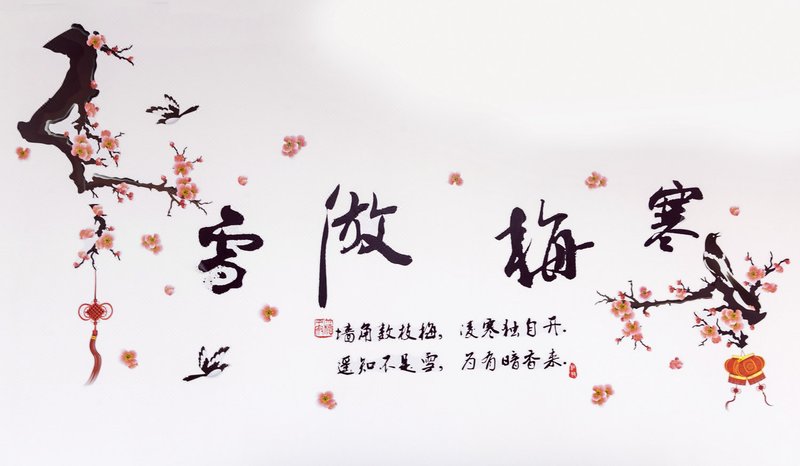 寒梅傲雪
墙角数枝梅，凌寒独自开.
遥知不是雪，为有暗香来.